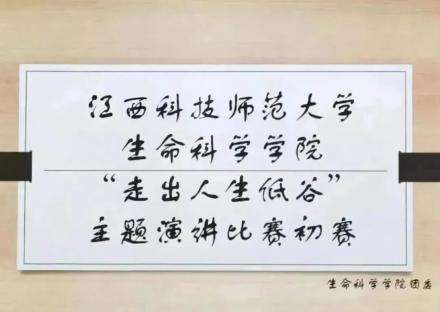 江西科技师范大学
生命科学学院
“走出人生低谷”
主题演讲比赛初赛
生命科学学院团委